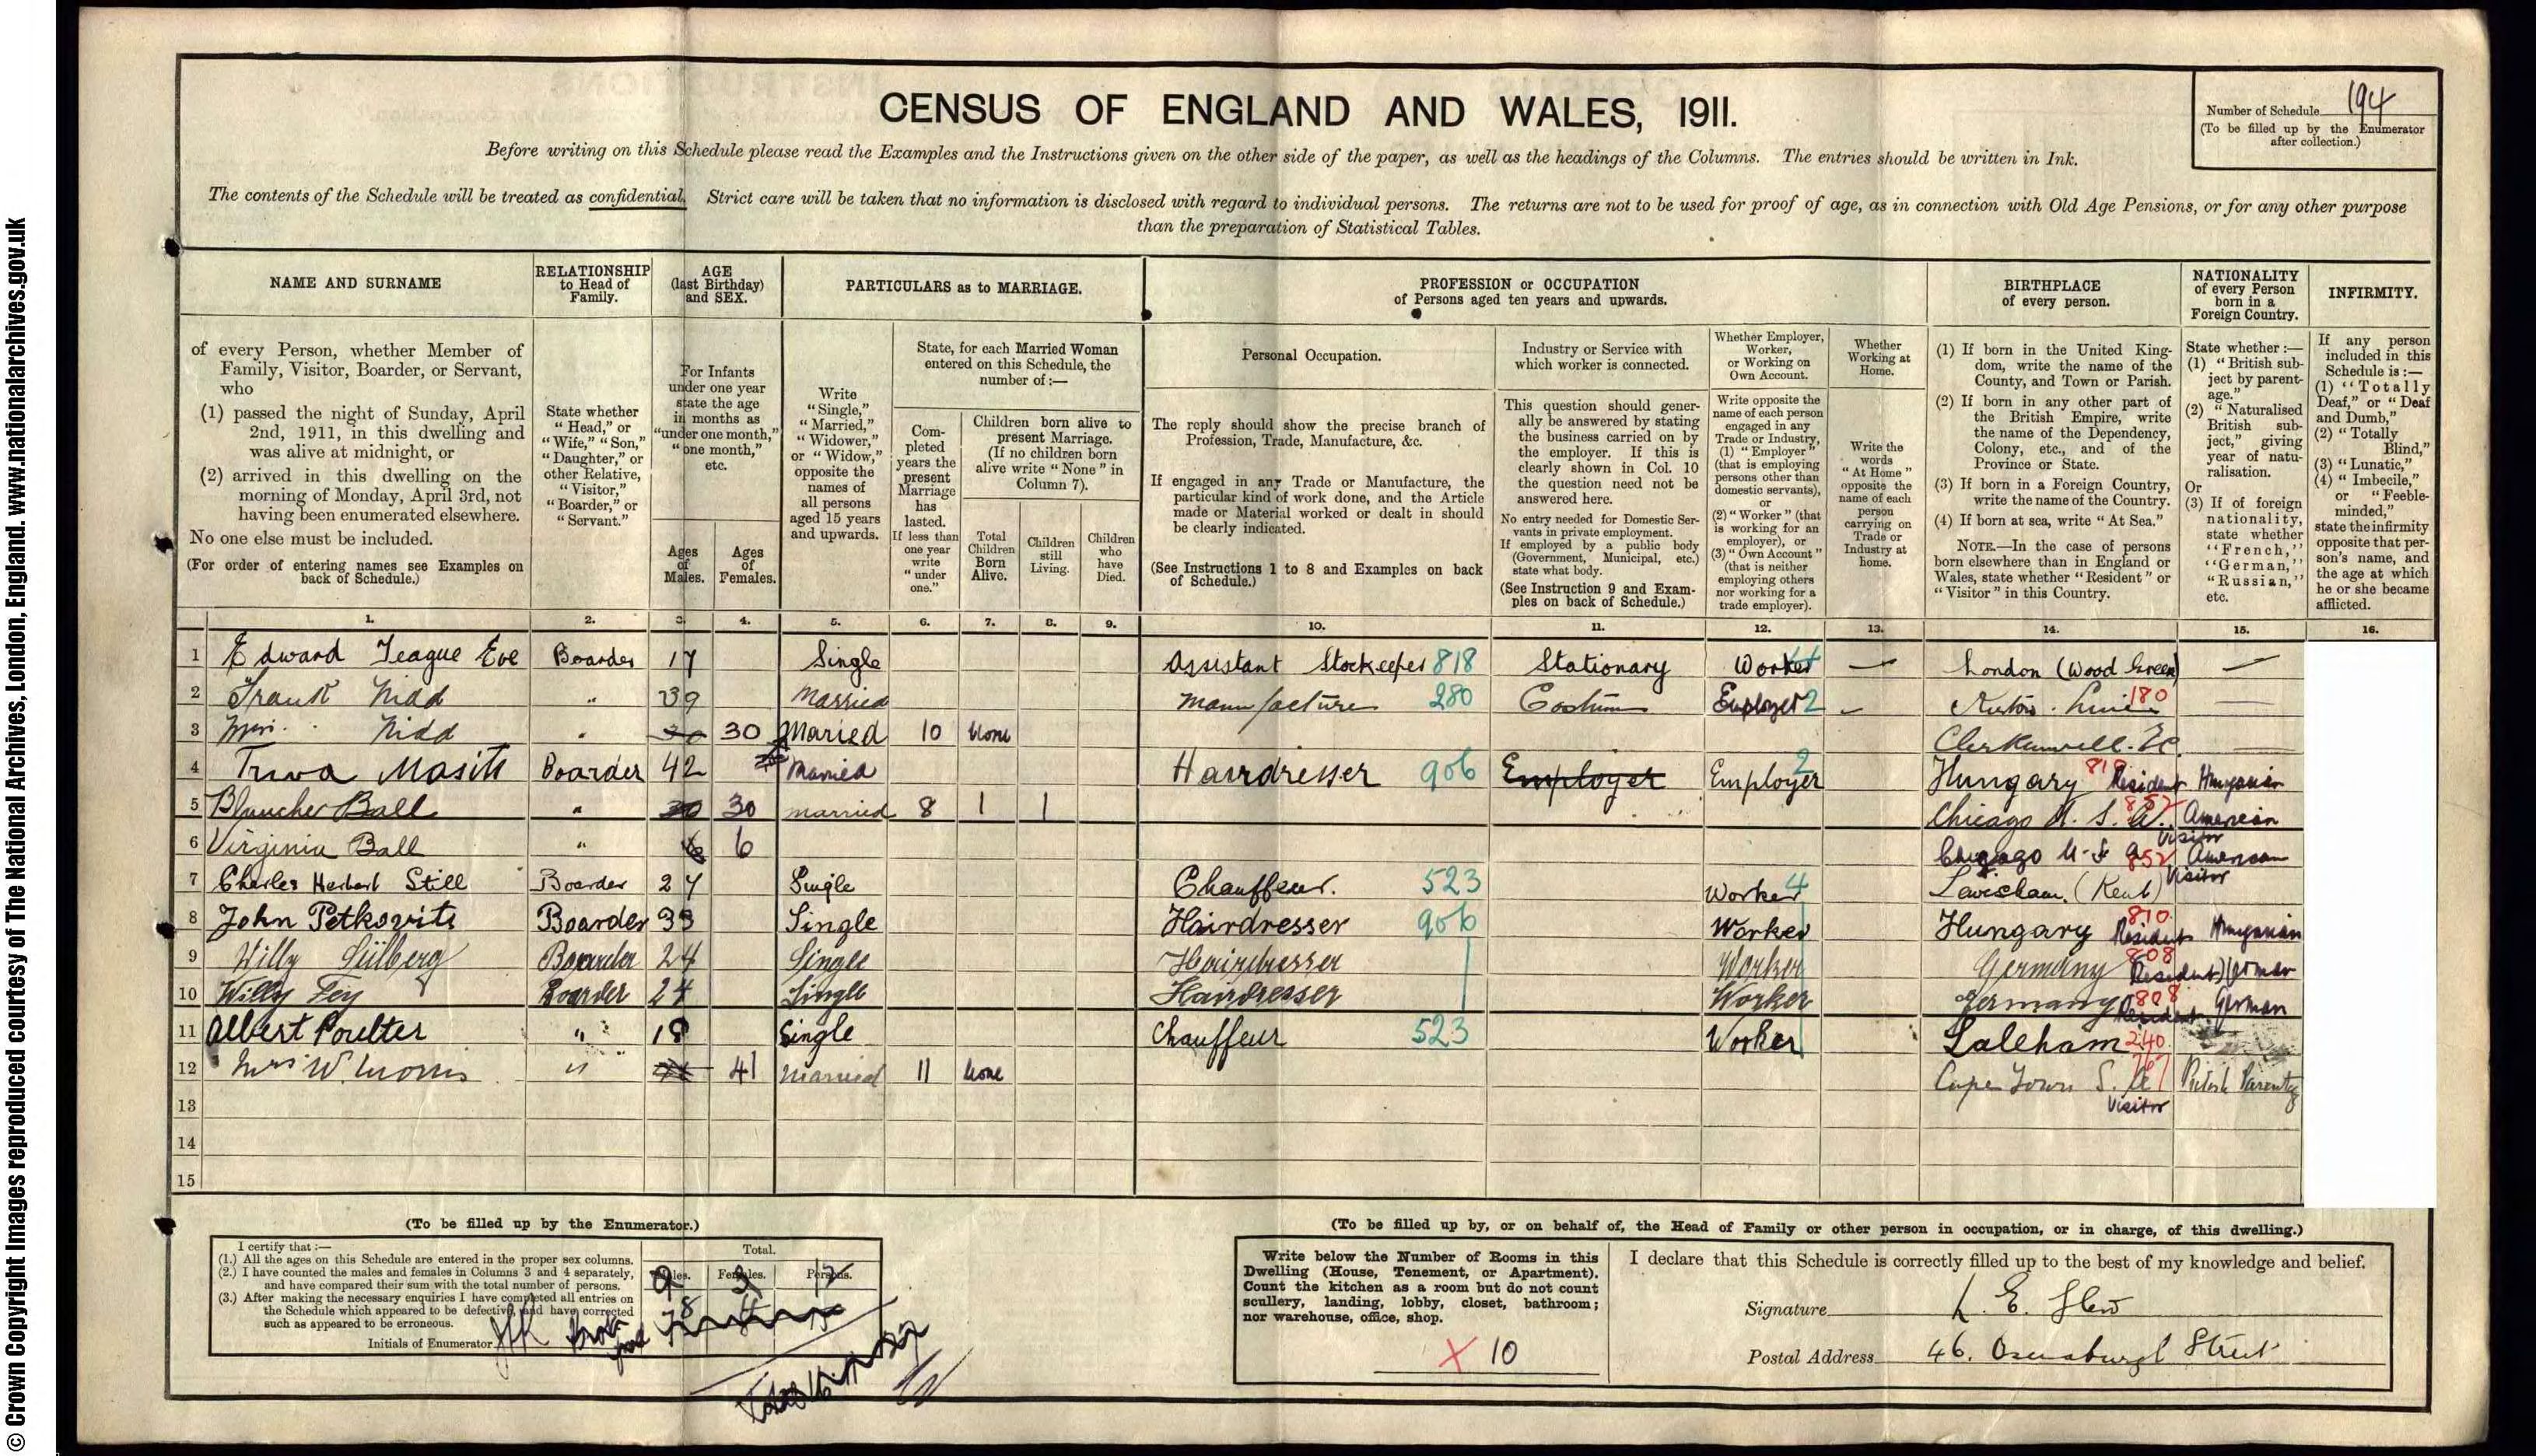 © Crown Copyright Images reproduced courtesy of The National Archives, London, England. www.nationalarchives.gov.uk
CENSUS OF ENGLAND AND WALES, 1911.
Number of Schedule 194
(To be filled up by the Enumerator
after collection.)
Before writing on this Schedule please read the Examples and the Instructions given on the other side of the paper, as well as the headings of the Columns. The entries should be written in Ink.
The contents of the Schedule will be treated as confidential. Strict care will be taken that no information is disclosed with regard to individual persons. The returns are not to be used for proof of age, as in connection with Old Age Pensions, or for any other purpose
than the preparation of Statistical Tables.
NAME AND SURNAME
of every Person, whether Member of
Family, Visitor, Boarder, or Servant,
who
(1) passed the night of Sunday, April
2nd, 1911, in this dwelling and
was alive at midnight, or
(2) arrived in this dwelling on the
morning of Monday, April 3rd, not
having been enumerated elsewhere.
No one else must be included.
(For order of entering names see Examples on
back of Schedule.)
RELATIONSHIP
to Head of
Family.
State whether
"Head," or
"Wife," "Son,"
"Daughter," or
other Relative,
"Visitor,"
"Boarder," or
"Servant."
AGE
(last Birthday)
and SEX.
For Infants
under one year
state the age
in months as
"under one month,"
"one month,"
etc.
Ages
of
Males.
Ages
of
Females.
PARTICULARS as to MARRIAGE.
Write
"Single,"
"Married,"
"Widower,"
or "Widow,"
opposite the
names of
all persons
aged 15 years
and upwards.
State, for each Married Woman
entered on this Schedule, the
number of :—
Com-
pleted
years the
present
Marriage
has
lasted.
If less than
one year
write
"under
one."
Children born alive to
present Marriage.
(If no children born
alive write "None" in
Column 7).
Total
Children
Born
Alive.
Children
still
Living.
Children
who
have
Died.
PROFESSION or OCCUPATION
of Persons aged ten years and upwards.
Personal Occupation.
The reply should show the precise branch of
Profession, Trade, Manufacture, &c.
If engaged in any Trade or Manufacture, the
particular kind of work done, and the Article
made or Material worked or dealt in should
be clearly indicated.
(See Instructions 1 to 8 and Examples on back
of Schedule.)
Industry or Service with
which worker is connected.
This question should gener-
ally be answered by stating
the business carried on by
the employer. If this is
clearly shown in Col. 10
the question need not be
answered here.
No entry needed for Domestic Ser-
vants in private employment.
If employed by a public body
(Government, Municipal, etc.)
state what body.
(See Instruction 9 and Exam-
ples on back of Schedule.)
Whether Employer,
Worker,
or Working on
Own Account.
Write opposite the
name of each person
engaged in any
Trade or Industry,
(1) "Employer"
(that is employing
persons other than
domestic servants),
or
(2) "Worker" (that
is working for an
employer), or
(3) "Own Account"
(that is neither
employing others
nor working for a
trade employer).
Whether
Working at
Home.
Write the
words
"At Home"
opposite the
name of each
person
carrying on
Trade or
Industry at
home.
BIRTHPLACE
of every person.
(1) If born in the United King-
dom, write the name of the
County, and Town or Parish.
(2) If born in any other part of
the British Empire, write
the name of the Dependency,
Colony, etc., and of the
Province or State.
(3) If born in a Foreign Country,
write the name of the Country.
(4) If born at sea, write "At Sea."
NOTE.—In the case of persons
born elsewhere than in England or
Wales, state whether "Resident" or
"Visitor" in this Country.
NATIONALITY
of every Person
born in a
Foreign Country.
State whether :—
(1) "British sub-
ject by parent-
age."
(2) "Naturalised
British sub-
ject," giving
year of natu-
ralisation.
Or
(3) If of foreign
nationality,
state whether
"French,"
"German,"
"Russian,"
etc.
INFIRMITY.
If any person
included in this
Schedule is :—
(1) "Totally
Deaf," or "Deaf
and Dumb,"
(2) "Totally
Blind,"
(3) "Lunatic,"
(4) "Imbecile,"
or "Feeble-
minded,"
state the infirmity
opposite that per-
son's name, and
the age at which
he or she became
afflicted.
1. 2. 3. 4. 5. 6. 7. 8. 9. 10. 11. 12. 13. 14. 15. 16.
1 Edward Teague Eve Boarder 17 Single Assistant Stockeeper 818 Stationary Worker — London (Wood Green) —
2 Frank Nidd " 39 Married Manufacture 280 Costume Employer 2 180
3 Mrs. Nidd " 30 Married 10 None Clerkenwell. EC
4 Masits Boarder 42 Married Hairdresser 906 Employer Employer 2 Hungary 810 Resident Hungarian
5 Blanche Ball " 30 married 8 1 1 Chicago U.S.A. 852 American
Visitor
6 Virginia Ball " 6 Chicago U.S.A. 852 American
Visitor
7 Charles Herbert Still Boarder 27 Single Chauffeur. 523 Worker 4 Lewisham. (Kent)
8 John Petkovits Boarder 33 Single Hairdresser 906 Worker Hungary 810 Resident Hungarian
9 Willy Boarder 24 Single Hairdresser Worker Germany 808 Resident German
10 Willy Fey Boarder 24 Single Hairdresser Worker Germany 808 Resident German
11 Albert Poulter " 18 Single Chauffeur 523 Worker Laleham 240
12 Mrs W. Morris " 41 Married 11 None Cape Town S. A 767 British Parentage
Visitor
13
14
15
(To be filled up by the Enumerator.)
I certify that :—
(1.) All the ages on this Schedule are entered in the proper sex columns.
(2.) I have counted the males and females in Columns 3 and 4 separately,
and have compared their sum with the total number of persons.
(3.) After making the necessary enquiries I have completed all entries on
the Schedule which appeared to be defective, and have corrected
such as appeared to be erroneous.
Initials of Enumerator
Total.
Males. Females. Persons.
(To be filled up by, or on behalf of, the Head of Family or other person in occupation, or in charge, of this dwelling.)
Write below the Number of Rooms in this
Dwelling (House, Tenement, or Apartment).
Count the kitchen as a room but do not count
scullery, landing, lobby, closet, bathroom;
nor warehouse, office, shop.
X 10
I declare that this Schedule is correctly filled up to the best of my knowledge and belief.
Signature L. E.
Postal Address 46. Osnaburgh Street